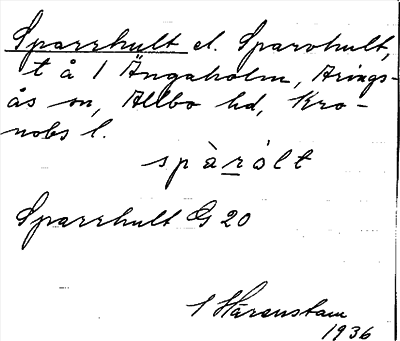 Sparrhult el. Sparvhult,
t å 1 Ängaholm, Arings-
ås sn, Allbo hd, Kro-
nobs l.
spàrólt
Sparrhult G 20
1 Hårenstam
1936